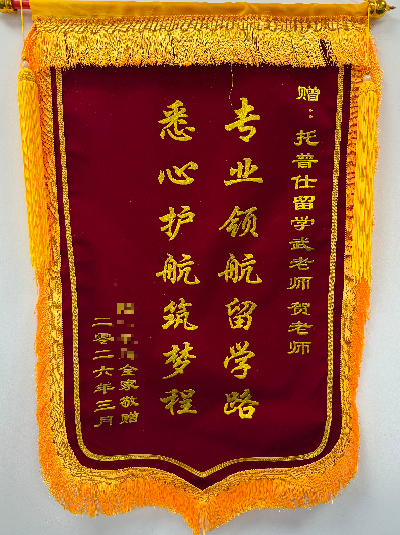 赠：托普仕留学武老师 贺老师
专业领航留学路
悉心护航筑梦程
全家敬赠
二零二六年三月